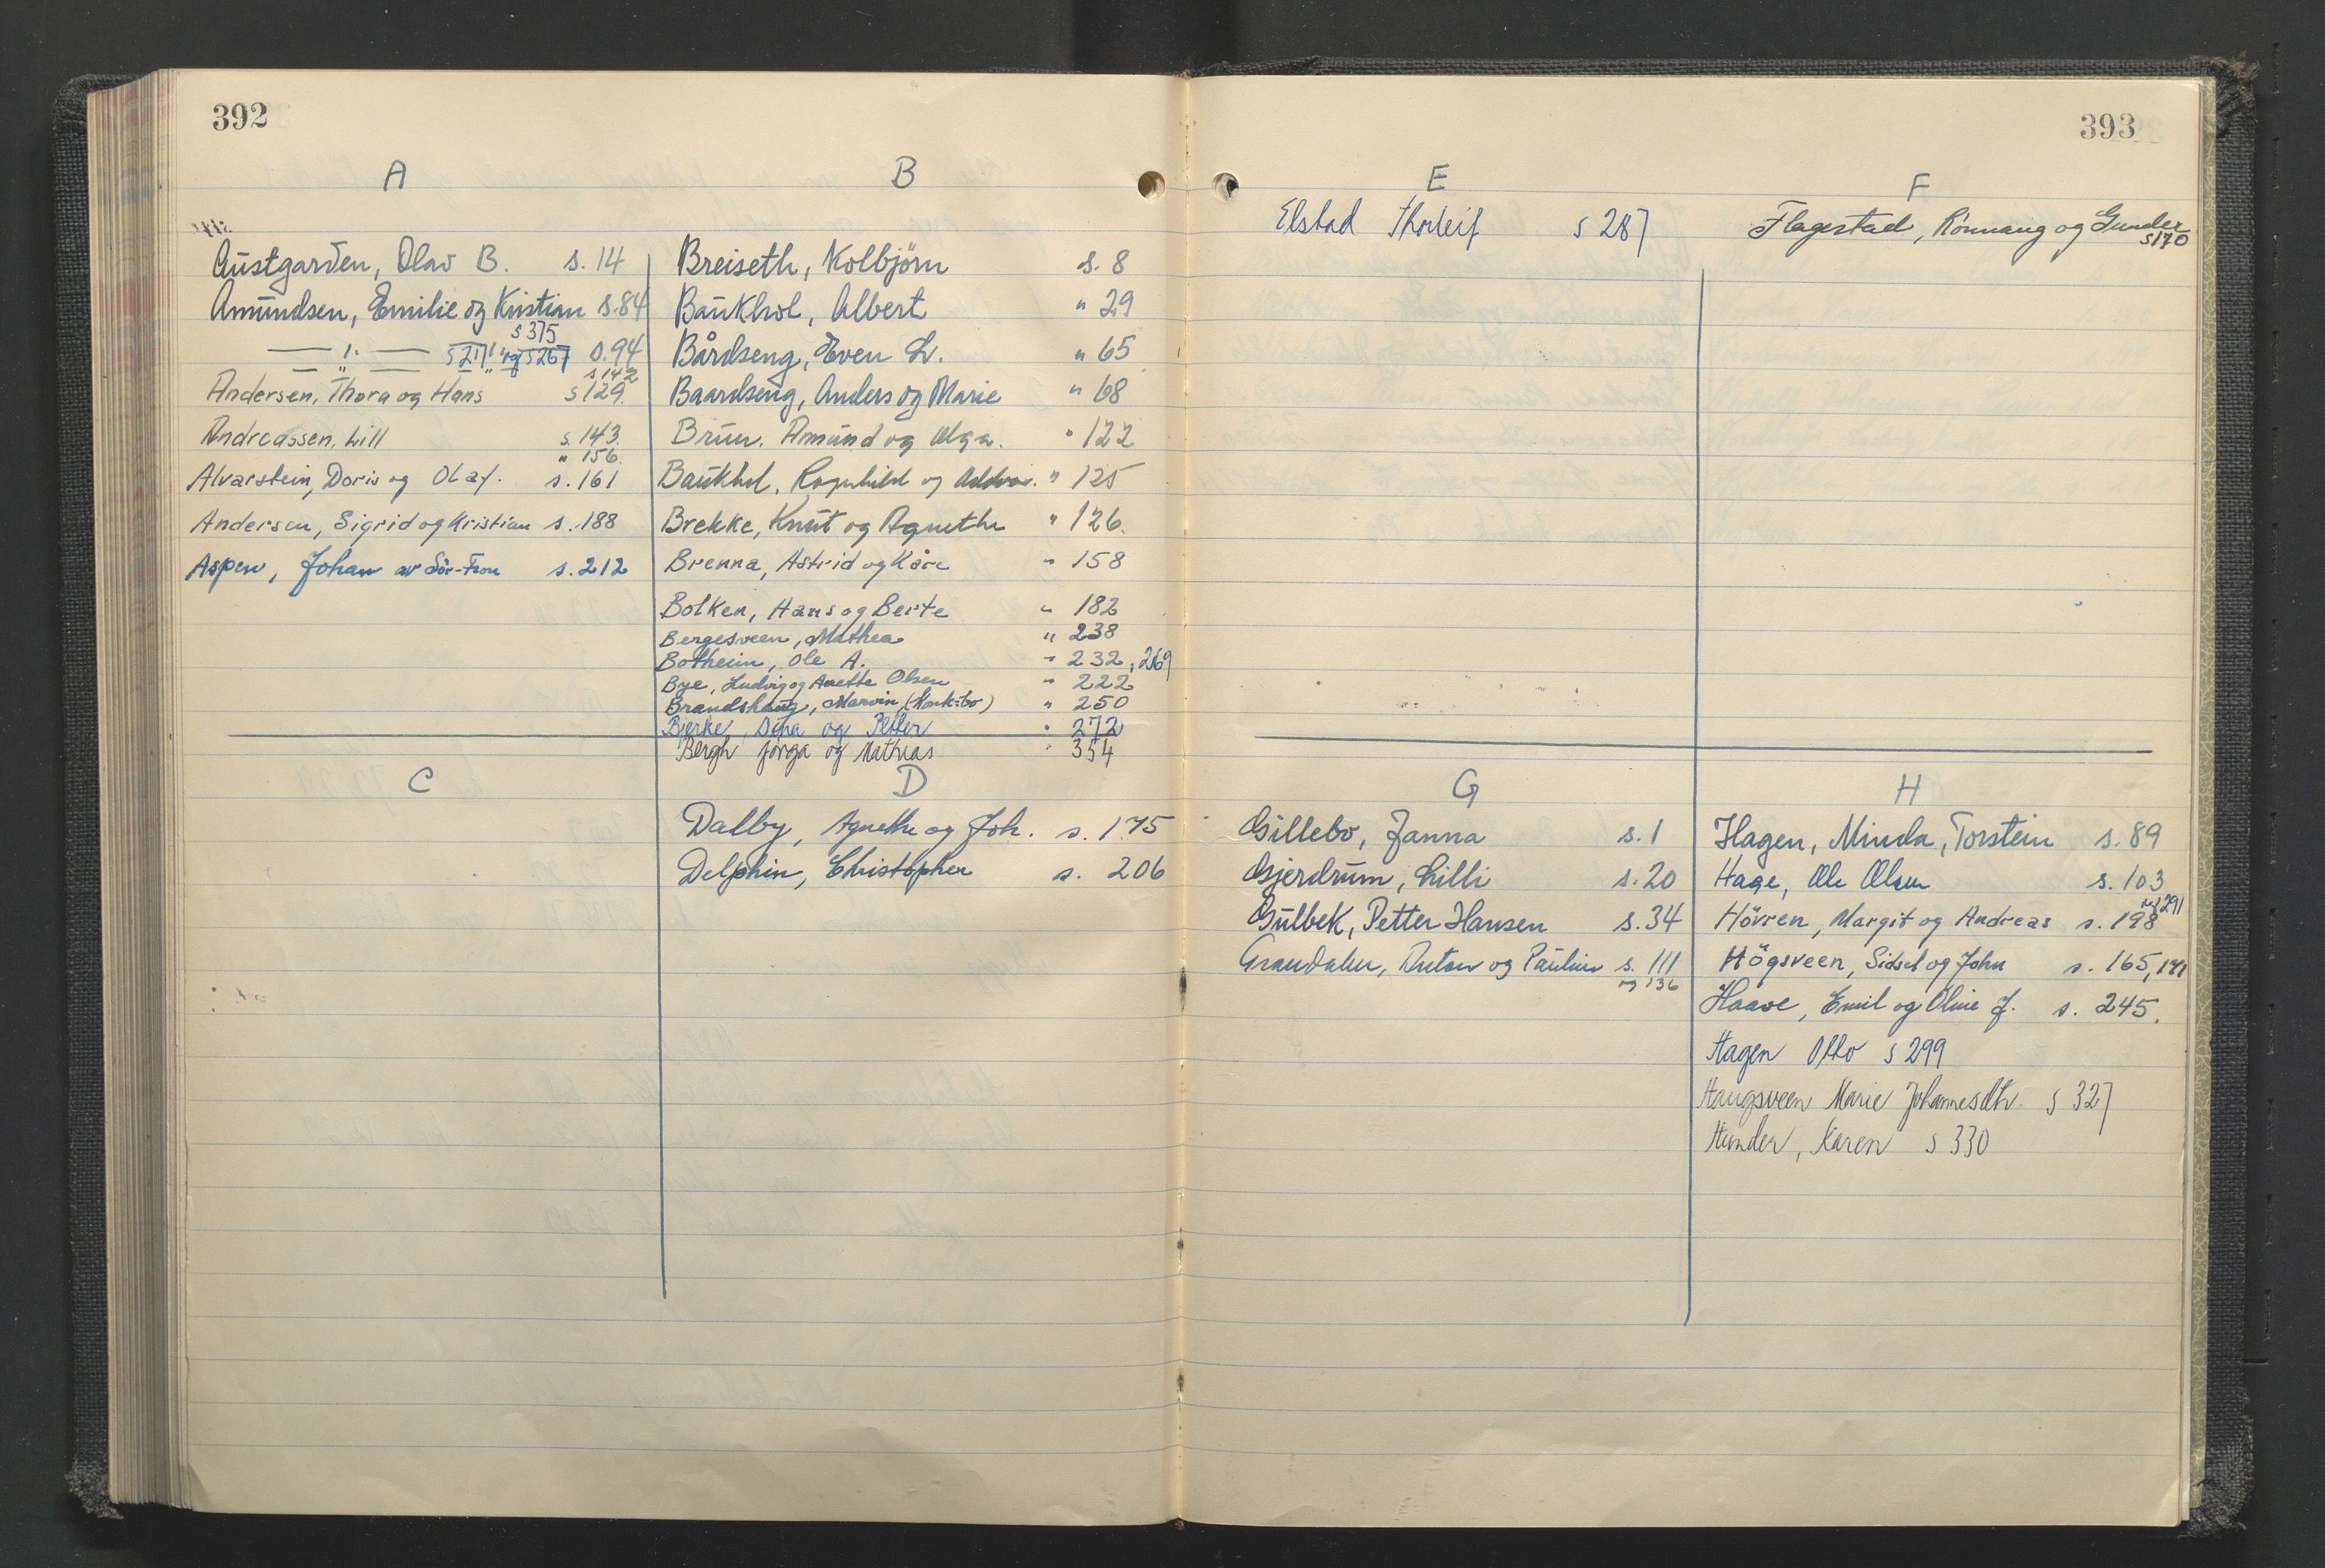 392
A
Austgarden, Olav B. s. 14
Amundsen, Emilie og Kristian s. 84
s 375
— " — s 217 og s 267 s. 94
— " — s 142
Andersen, Thora og Hans s 129.
Andreassen, Lill s. 143.
" 156.
Alvarstein, Doris og Olaf. s. 161
Andersen, Sigrid og Kristian s. 188
Aspen, Johan av Sör-Fron s. 212
B
Breiseth, Kolbjörn s. 8
Baukhol, Albert " 29
Bårdseng, Even L. " 65
Baardseng, Anders og Marie " 68
Brun. Amund og Olga. " 122
Baukhol, Ragnhild og " 125
Brekke, Knut og Agnethe " 126.
Brenna, Astrid og Kåre " 158
Bolken, Hans og Berte " 182
Bergesveen, Mathea " 238
Botheim, Ole A. " 232, 269
Bye, Ludvig og Anette Olsen " 222
Brandshaug, Marvin " 250
Bjerke, og Petter " 272
Bergh Jörga og Mathias " 354
C
D
Dalby, Agnethe og Joh. s. 175
Delphin, Christopher s. 206
393
E
Elstad Thorleif s 287
F
Flagestad, Rönnaug og Gunder
s 170
G
Gillebo, Janna s. 1
Gjerdrum, Lilli s. 20
Gulbek, Petter Hansen s. 34
Grandalen, Anton og Pauline s. 111
og 136
H
Hagen, Minda, Torstein s. 89
Hage, Ole Olsen s. 103
og 291
Hövren, Margit og Andreas s. 198
Högsveen, Sidsel og John s. 165,
Haave, Emil og Oline J. s. 245.
Hagen Otto s 299
Haugsveen Marie Johannesdtr. s 327
Hunder, Karen s 330